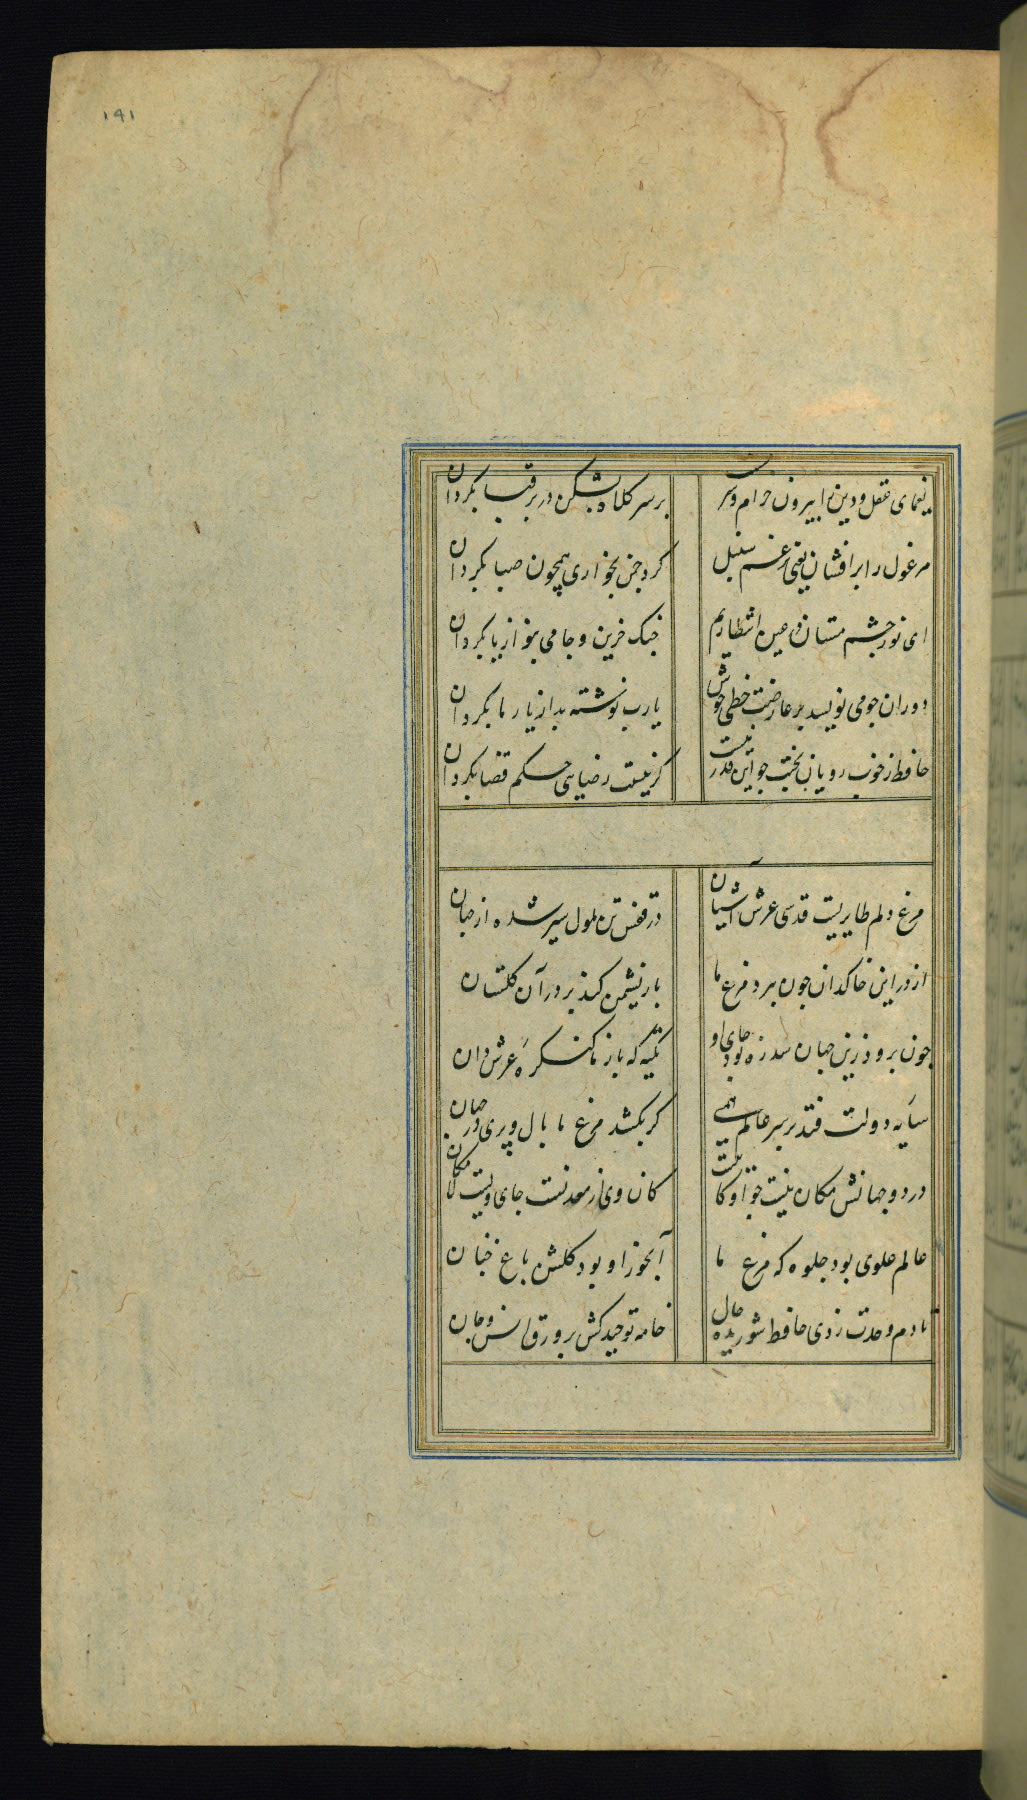 ۱۴۱
یغمای عقل و دین را بیرون خرام سرمست
بر سر کلاه بشکن در بر قبا بکردان
مرغول را برافشان یعنی برغم سنبل
کرد چمن بخواری همچون صبا بکردان
ای نور چشم مستان در عین انتظاریم
چنک حزین و جامی بنواز یا بکردان
دوران جو می نویسد بر عارضت خطی خوش
یارب نوشته بد از یار ما بکردان
حافظ ز خوب رویان بختت جو این قدر نیست
کر نیست رضایی حکم قضا بکردان
مرغ دلم طایریست قدسی عرش آشیان
در قفس تن ملول سیر شده از جهان
از در این خاکدان جون ببرد مرغ ما
باز نشیمن کند بر در آن کلستان
جون برود زین جهان سدره بود جای او
تکیه که باز ما کنکره عرش دان
سایه دولت فتد بر سر عالم همی
کر بکشد مرغ ما بال و پری در جهان
در دو جهانش مکان نیست جو او کا
کان وی از معدنست جای ویست لا مکان
عالم علوی بود جلوه که مرغ ما
آبخور او بود کلشن باغ جنان
تا دم وحدت زدی حافظ شوریده حال
خامه توحید کش بر ورق انس و جان